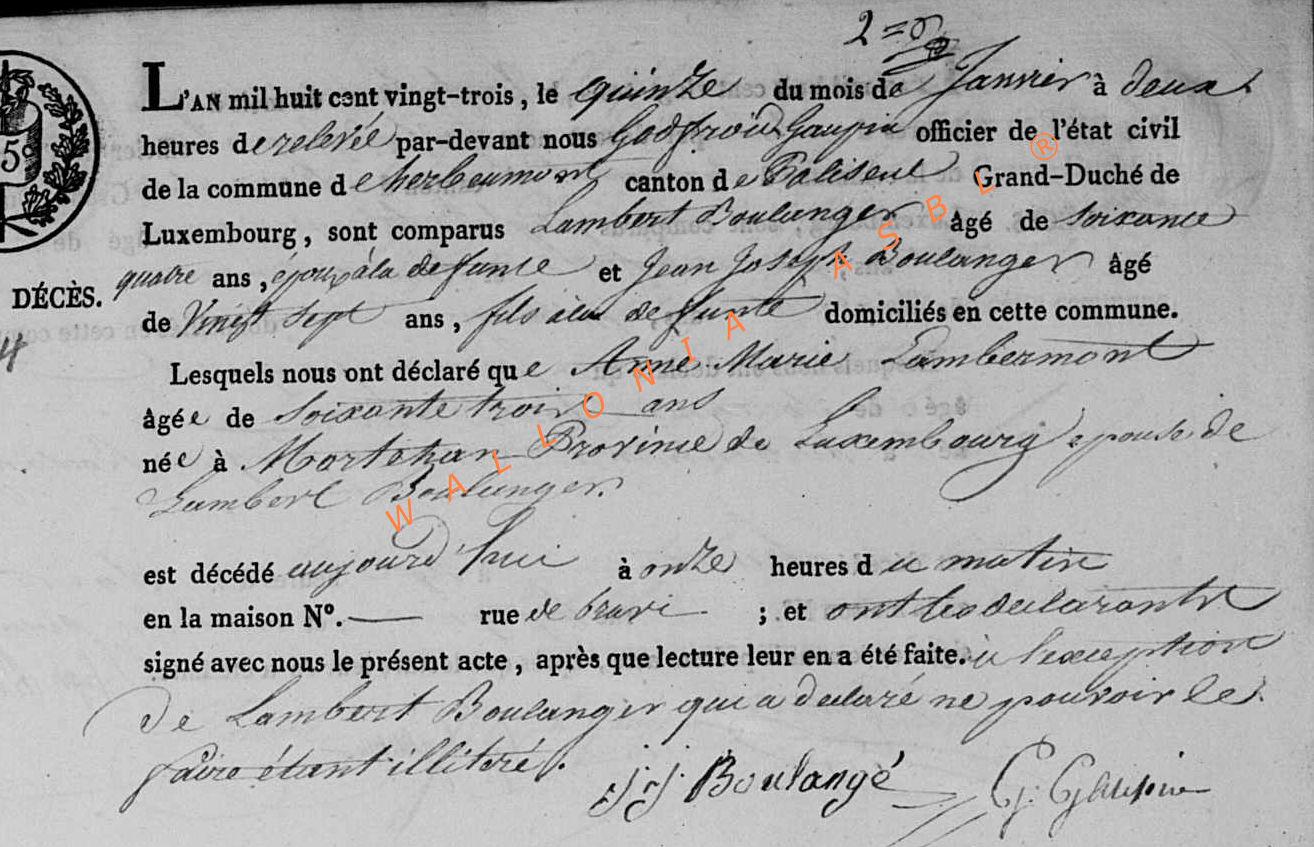 2=
L'AN mil huit cent vingt-trois, le quinze du mois de Janvier à deux
5c
heures de relevée par-devant nous Godfroid Gaupin officier de l'état civil
de la commune de herbeumont canton de Paliseul Grand-Duché de
Luxembourg, sont comparus Lambert Boulanger âgé de soixante
quatre ans, époux à la defunte et Jean Joseph Boulanger âgé
DÉCÈS.
de Vingt sept ans, fils à la defunte domiciliés en cette commune.
4
Lesquels nous ont déclaré que Anne Marie Lambermont
âgée de soixante trois ans
née à Mortehan Province de Luxembourg epouse de
Lambert Boulanger.
est décédé aujourd'hui à onze heures du matin
en la maison N°. — rue de ; et ont les declarants
signé avec nous le présent acte, après que lecture leur en a été faite. à l'exception
de Lambert Boulanger qui a declaré ne pouvoir le
faire étant illitéré.
J J Boulangé G. Gaupin
WALLONIA ASBL ®